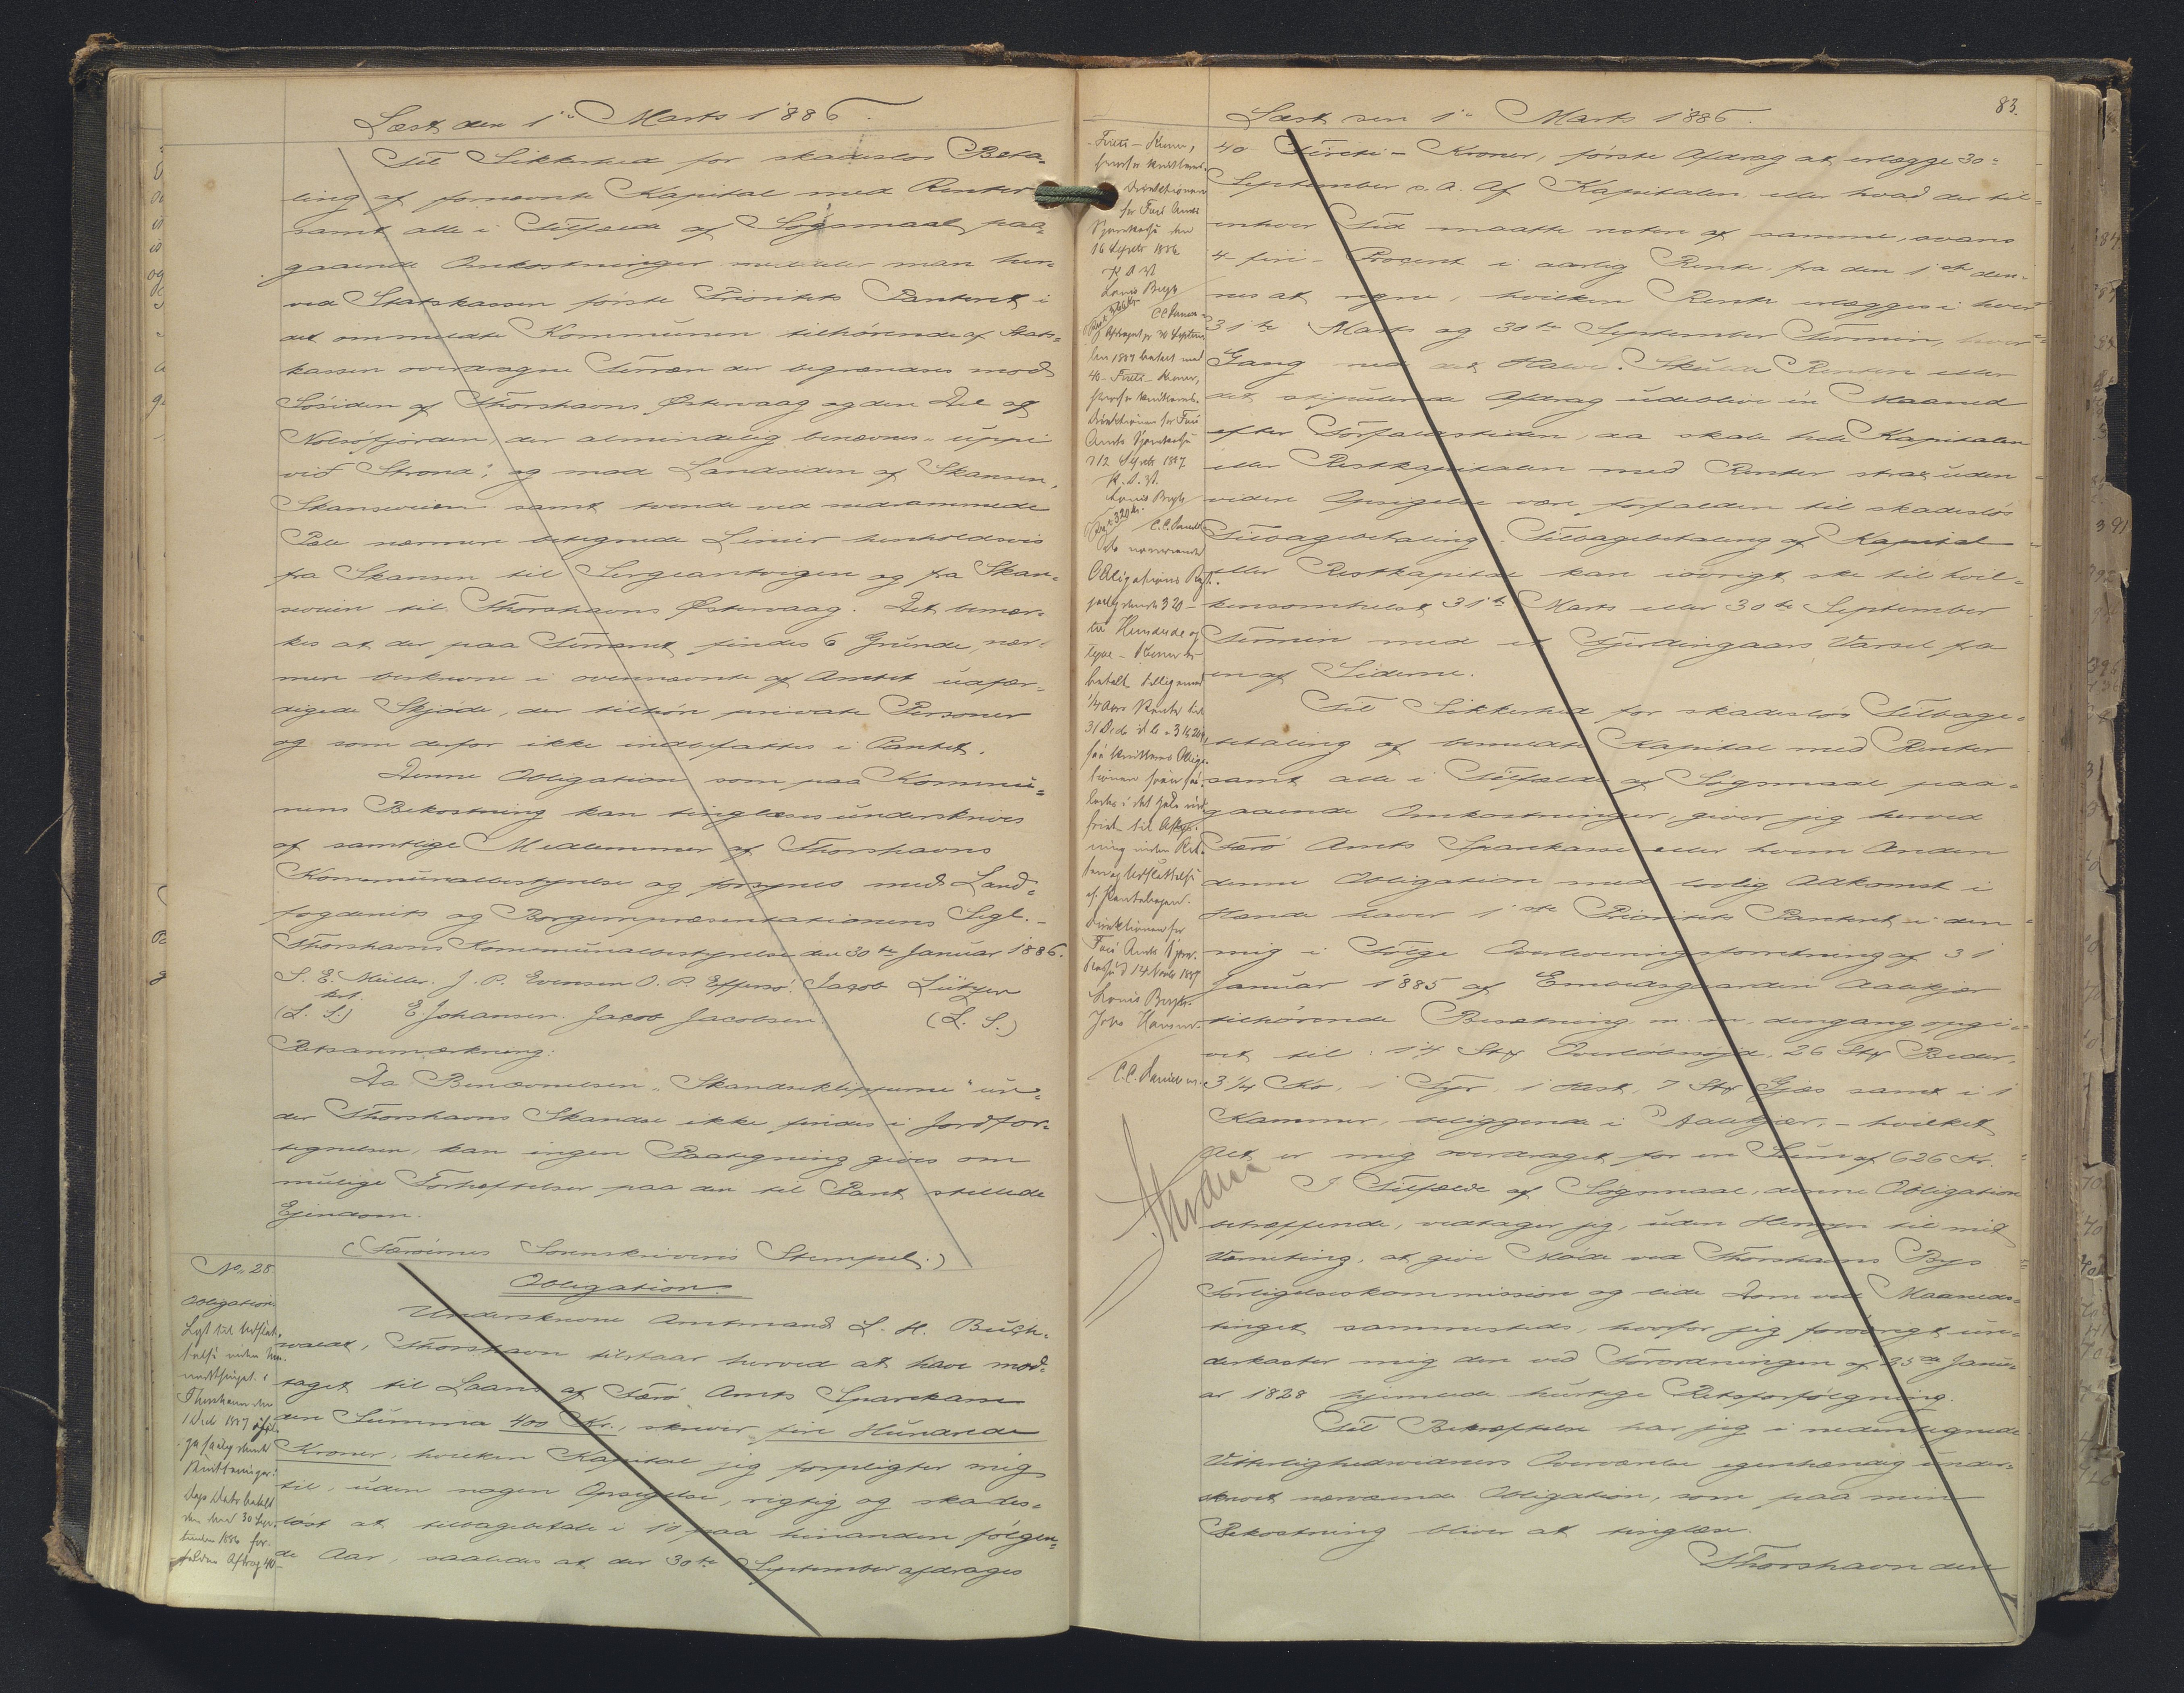 Læst den 1ste Marts 1886.
Til Sikkerhed for skadesløs Beta-
ling af fornævnte Kapital med Renter
samt alle i Tilfælde af Søgsmaal paa-
gaaende Omkostninger meddeler man her-
ved Statskassen første Prioritets Panteret i
det ommeldte Kommunen tilhørende af Stats-
kassen overdragne Terræn der begrændses mod
Søsiden af Thorshavns Østervaag og den Del af
Nolsøfjorden, der almindelig benævnes "uppi
við Strond", og mod Landsiden af Skansen,
Skanseveien samt tvende ved nedrammede
Pæle nærmere betegnede Linier henholdsvis
fra Skansen til Sergeantvigen og fra Skan-
seveien til Thorshavns Østervaag. Det bemær-
kes at der paa Terrænet findes 6 Grunde, nær-
mere beskrevne i ovennævnte af Amtet udfær-
digede Skjøde, der tilhøre private Personer
og som derfor ikke indbefattes i Pantet.
Denne Obligation som paa Kommu-
nens Bekostning kan tinglæses underskrives
af samtlige Medlemmer af Thorshavns
Kommunalbestyrelse og forsynes med Land-
fogderiets og Borgerrepræsentationens Segl.-
Thorshavns Kommunalbestyrelse den 30te Januar 1886.
S. E. Müller. J. P. Evensen O. P. Effersø. Jacob Lützen
kst.
(L. S.) E. Johansen. Jacob Jacobsen. (L. S.)
Retsanmærkning:
Da Benævnelsen "Skandseklipperne" un-
der Thorshavns Skandse ikke findes i Jordfor-
tegnelsen, kan ingen Paategning gives om
mulige Forhæftelser paa den til Pant stillede
Ejendom.
(Færøernes Sorenskriveris Stempel.)
No. 28.
Obligation
Lyst til Udslet-
telse
Thorshavn den
1 Decb 1887
Kvitteringer:
30 Sep-
tember 1886 for-
faldne Afdrag 40-
Obligation.
Underskrevne Amtmand L. H. Buch-
waldt, Thorshavn tilstaar herved at have mod-
taget til Laans af Færø Amts Sparekasse
den Summa 400 Kr., skriver fire Hundrede
Kroner, hvilken Kapital jeg forpligter mig
til, uden nogen Opsigelse, rigtig og skades-
løst at tilbagebetale i 10 paa hinanden følgen-
de Aar, saaledes at der 30te September afdrages
83.
Læst den 1ste Marts 1886.
-Fireti- Kroner,
Direktionen
for Færø Amts
Sparekasse den
16 Septbr 1886
P. D. V.
Louis Bergh
C. C. Danielsen
Afdraget pr 30 Septem-
ber 1887 betalt med
40 - Fireti - Kroner,
Direktionen for Færø
Amts Sparekasse
d 12 Septbr 1887
P. D. V.
Louis Bergh
Rest 320 kr.
C. C. Danielsen
Obligations Rest-
320 -
tre Hundrede og
tyve - Kroner er
betalt tilligemed
1/4 Aars Renter til
31 Decb
af Pantebogen.
Direktionen for
Færø Amts Spare-
kasse d 14 Novbr 1887
Louis Bergh.
C. C. Danielsen.
40 Fireti - Kroner, første Afdrag at erlægge 30te
September d. A. Af Kapitalen eller hvad der til-
enhver Tid maatte restere af samme, svares
4 - fire - Procent i aarlig Rente fra den 1ste den-
nes at regne, hvilken Rente erlægges i hver
31te Marts og 30te September Termin, hver
Gang med det Halve. Skulde Renten eller
det stipulerede Afdrag udeblive en Maaned
efter Forfaldstiden, da skal hele Kapitalen
eller Restkapitalen med Renter strax uden
videre Opsigelse være forfalden til skadesløs
Tilbagebetaling. Tilbagebetaling af Kapital
eller Restkapital kan iøvrigt ske til hvil-
kensomhelst 31te Marts eller 30te September
Termin med et Fjerdingaars Varsel fra
en af Siderne.
Til Sikkerhed for skadesløs Tilbage-
betaling af bemeldte Kapital med Renter
samt alle i Tilfælde af Søgsmaal paa-
gaaende Omkostninger, giver jeg herved
Færø Amts Sparekasse eller hvem Anden
denne Obligation med lovlig Adkomst i
Hænde haver 1ste Prioritets Panteret i den
mig i Følge Overleveringsforretning af 31
Januar 1885 af Embedsgaarden Aalekjær
tilhørende Besætning m. m. dengang opgi-
vet til: 14 Stk Overløbsnøjd, 26 Stk Beder,
3 1/4 Kø, 1 Tyr, 1 Hest, 7 Stk Gjæs samt i 1
Kammer, beliggende i Aalekjær, - hvilket
Alt er mig overdraget for en Sum af 626 Kr.
I Tilfælde af Søgsmaal, denne Obligation
betræffende, vedtager jeg, uden Hensyn til mit
Værneting, at give Møde ved Thorshavns Bys
Forligelseskommission og lide Dom ved Maaneds-
tinget sammesteds, hvorfor jeg forøvrigt un-
derkaster mig den ved Forordningen af 25de Janu-
ar 1828 hjemlede hurtige Retsforfølgning.
Til Bekræftelse har jeg i nedentegnede
Vitterlighedsvidners Overværelse egenhændig under-
skrevet nærværende Obligation, som paa min
Bekostning bliver at tinglæse.
Thorshavn den